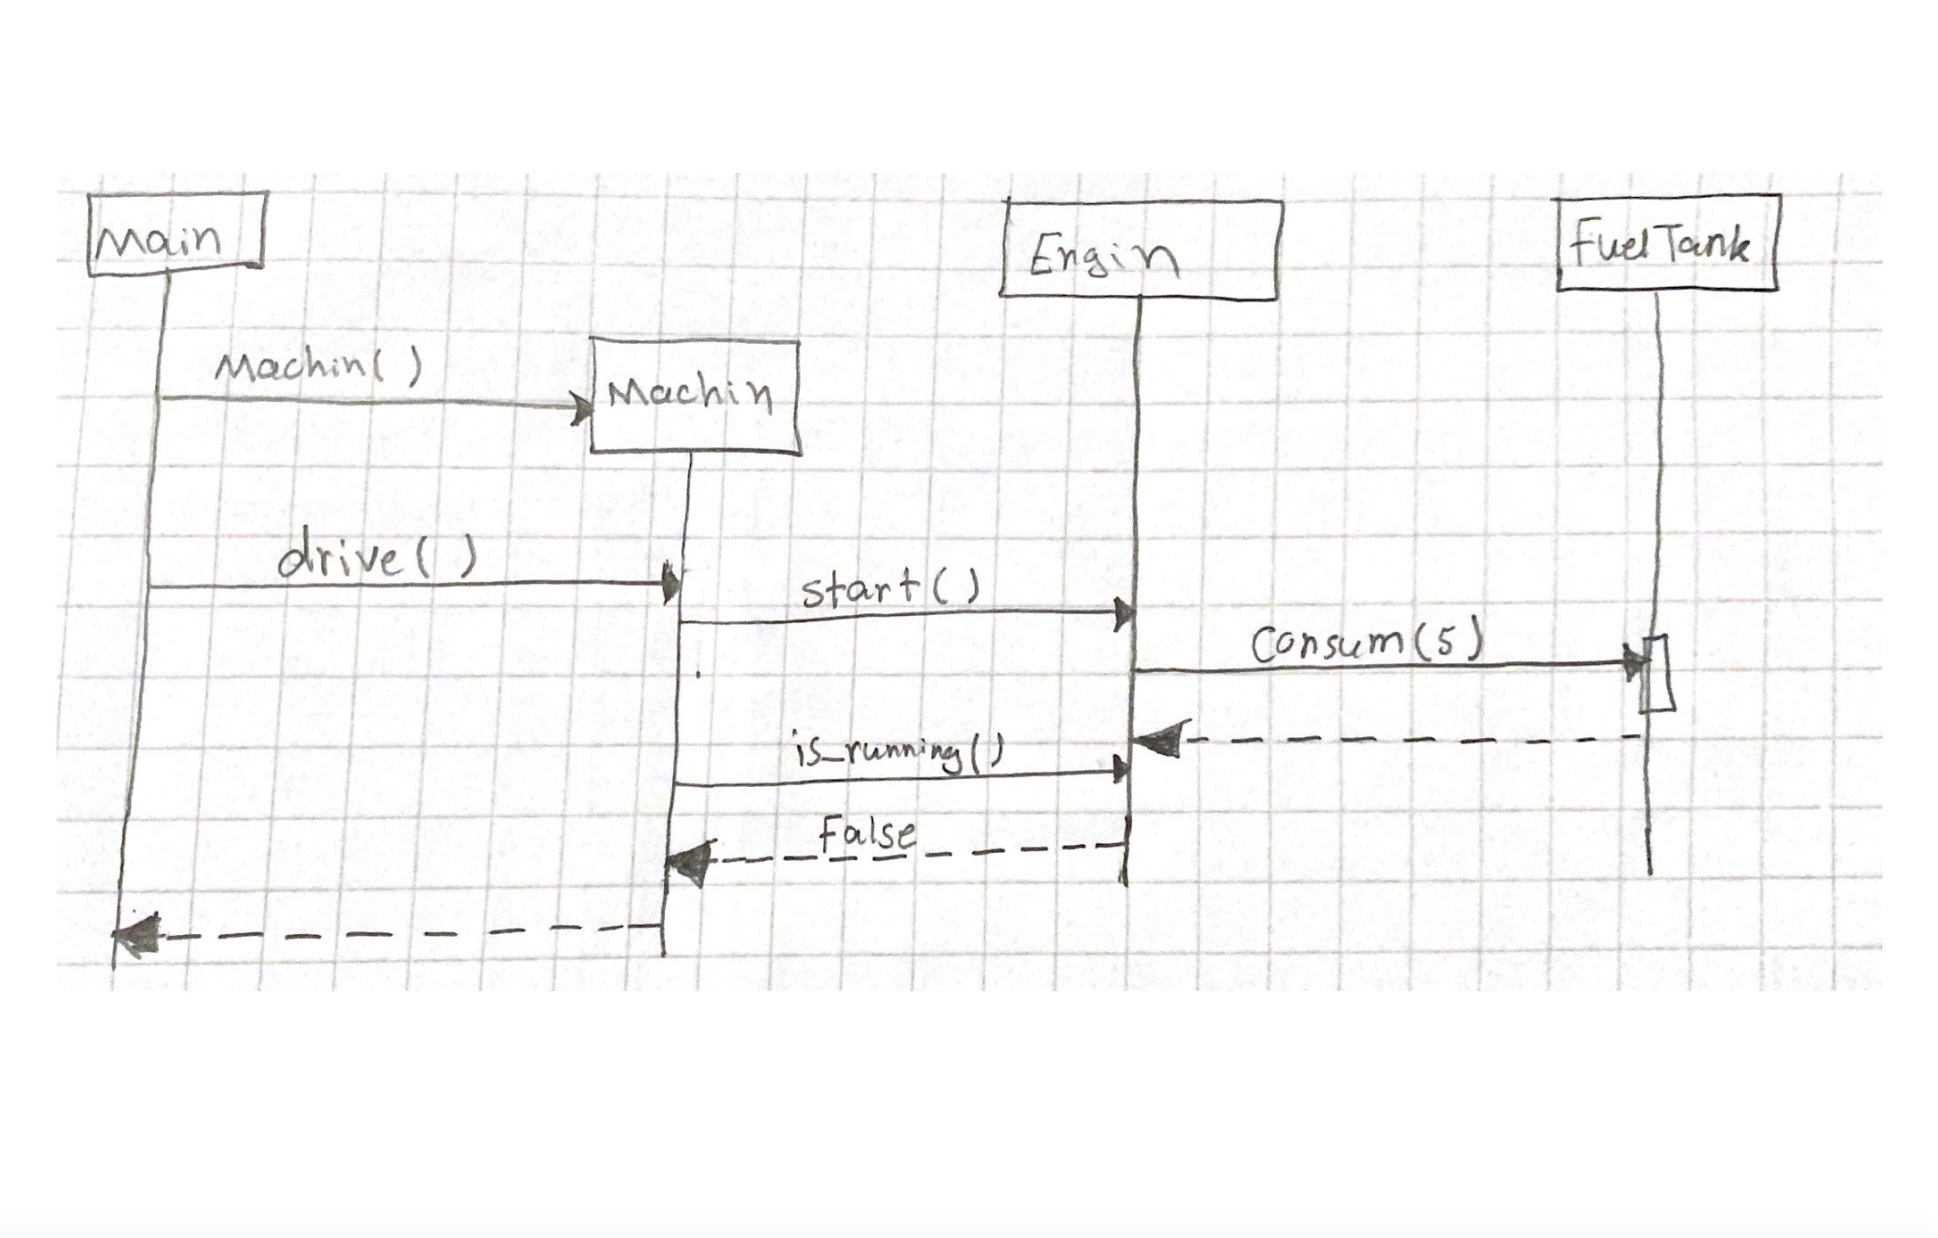 Main
Engin
FuelTank
Machin()
Machin
drive()
start()
Consum(5)
is_running()
False